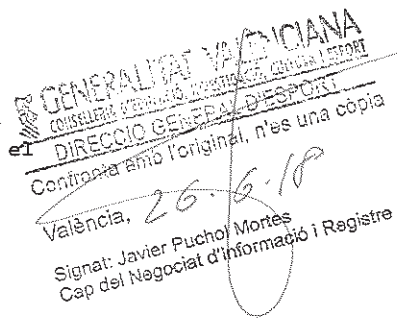 GENERALITAT VALENCIANA
CONSELLERIA D'EDUCACIÓ, INVESTIGACIÓ, CULTURA I ESPORT
DIRECCIÓ GENERAL D'ESPORT
el
Confronta amb l'original, n'és una còpia
València, 26.6.18
Signat: Javier Puchol Mortes
Cap del Negociat d'Informació i Registre